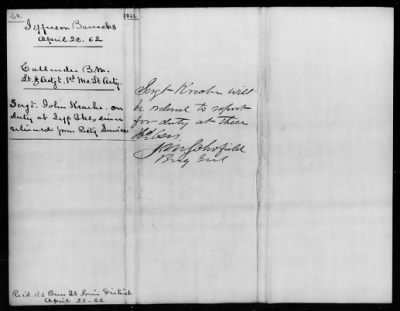 Jefferson Barracks
April 20. 62
Callender B.M.
Lt & Adjt. 1st Mo. Lt Arty.
Sergt. John on
duty at Jeff Bks, since
relieved from Arty Service
Sergt will
be ordered to report
for duty at these
Hd Qrs
J M Schofield
Brig Genl
Recd Hd Qrs St Louis District
April 22-62